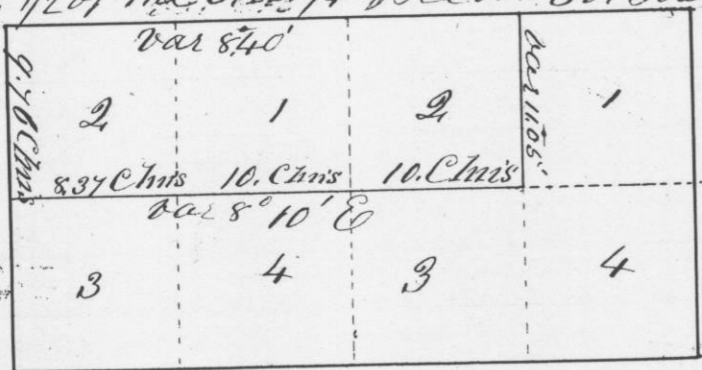 var 8°40'
9.70 Chns
2 1 2 1
var 11.05'
8.37 Chns 10. Chns 10. Chns
var 8° 10' E
3 4 3 4